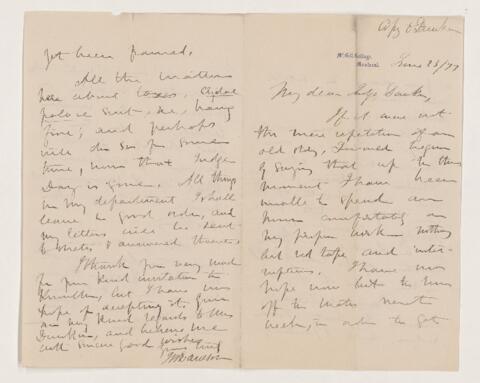 McGill College,
Montreal.
June 23/77
My dear
If it were not
the mere repetition of an
old story, I would begin
by saying that up to this
moment I have been
unable to spend an
hour comfortably on
my proper work nothing
but red tape and inter-
ruptions. I have no
hope now but to run
off to Metis next
week, in order to get
yet been framed.
All the matters
here about taxes,
suit, &c., hang
fire; and perhaps
will do so for some
time, now that Judge
Day is gone. All things
in my department I shall
leave in good order, and
my letters will be sent
to Metis & answered thence.
I thank you very much
for your kind invitation to
but I have no
hope of accepting it. Give
my kind regards to Mrs
and believe me
with sincere good wishes
yours truly
JWDawson